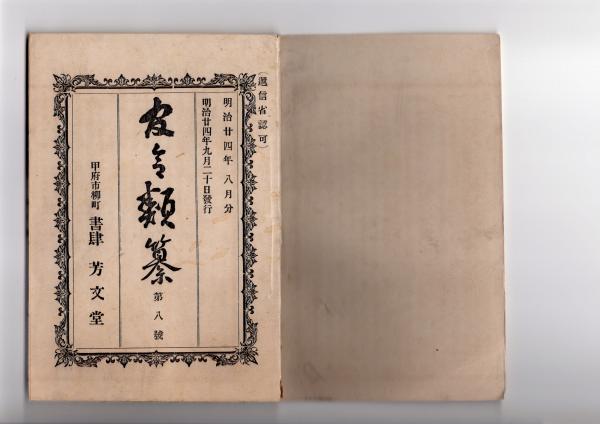 （遞信省認可）
明治廿四年八月分
明治廿四年九月二十日發行
官令類纂
第八號
甲府市柳町 書肆 芳文堂